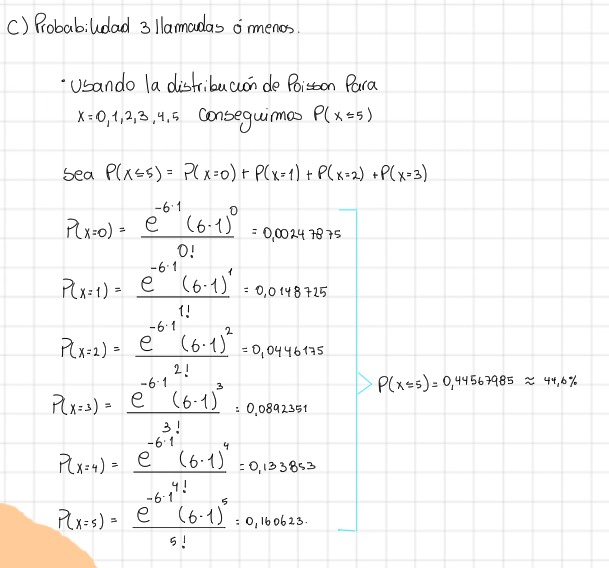 C) Probabilidad 3 llamadas ó menos.
· Usando la distribución de Poisson Para
x=0,1,2,3,4,5 Conseguimos P(x≤5)
Sea P(x≤5) = P(x=0) + P(x=1) + P(x=2) + P(x=3)
P(x=0) = e^-6·1 (6·1)^0 / 0! = 0,00247875
P(x=1) = e^-6·1 (6·1)^1 / 1! = 0,0148725
P(x=2) = e^-6·1 (6·1)^2 / 2! = 0,0446175
P(x≤5) = 0,44567985 ≈ 44,6%
P(x=3) = e^-6·1 (6·1)^3 / 3! = 0,0892351
P(x=4) = e^-6·1 (6·1)^4 / 4! = 0,133853
P(x=5) = e^-6·1 (6·1)^5 / 5! = 0,160623.